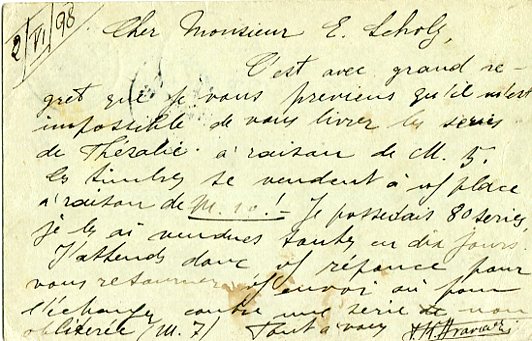 2/VI/98
Cher Monsieur E. Scholz,
C'est avec grand re-
gret que je vous previens qu'il m'est
impossible de vous livrer les series
de Thésalie à raison de M. 5.
les timbres se vendent à n/ place
à raison de M. 10.! - Je possedais 80 series,
je les ai vendues toutes en dix jours
J'attends donc v/ réponce pour
vous retourner v/ envoi ou pour
l'échanger contre une serie de non
obliterée (M. 7) Tout à vous